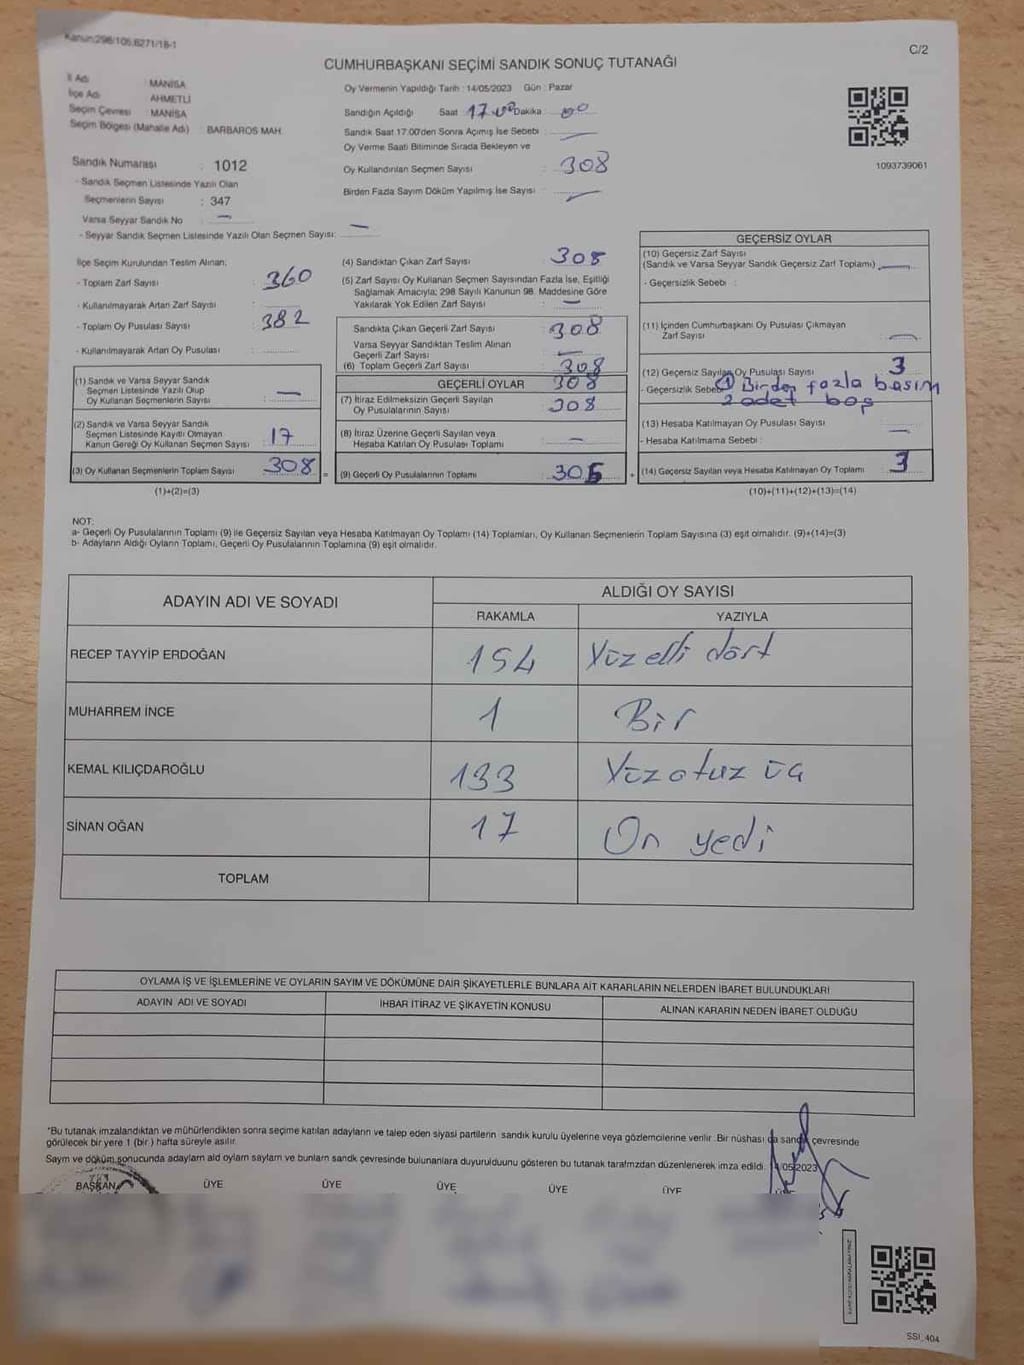 Kanun:298/105,6271/18-1
C/2
CUMHURBAŞKANI SEÇİMİ SANDIK SONUÇ TUTANAĞI
İl Adı : MANİSA
İlçe Adı : AHMETLİ
Seçim Çevresi : MANİSA
Seçim Bölgesi (Mahalle Adı) : BARBAROS MAH.
Sandık Numarası : 1012
- Sandık Seçmen Listesinde Yazılı Olan
Seçmenlerin Sayısı : 347
Varsa Seyyar Sandık No : —
- Seyyar Sandık Seçmen Listesinde Yazılı Olan Seçmen Sayısı: —
Oy Vermenin Yapıldığı Tarih : 14/05/2023 Gün : Pazar
Sandığın Açıldığı Saat 17.00 Dakika : 00
Sandık Saat 17.00'den Sonra Açımış İse Sebebi : —
Oy Verme Saati Bitiminde Sırada Bekleyen ve
Oy Kullandırılan Seçmen Sayısı : 308
Birden Fazla Sayım Döküm Yapılmış İse Sayısı : —
1093739061
İlçe Seçim Kurulundan Teslim Alınan;
- Toplam Zarf Sayısı : 360
- Kullanılmayarak Artan Zarf Sayısı :
- Toplam Oy Pusulası Sayısı : 382
- Kullanılmayarak Artan Oy Pusulası :
(1) Sandık ve Varsa Seyyar Sandık
Seçmen Listesinde Yazılı Olup
Oy Kullanan Seçmenlerin Sayısı : —
(2) Sandık ve Varsa Seyyar Sandık
Seçmen Listesinde Kayıtlı Olmayan
Kanun Gereği Oy Kullanan Seçmen Sayısı : 17
(3) Oy Kullanan Seçmenlerin Toplam Sayısı : 308
(1)+(2)=(3)
(4) Sandıktan Çıkan Zarf Sayısı : 308
(5) Zarf Sayısı Oy Kullanan Seçmen Sayısından Fazla İse, Eşitliği
Sağlamak Amacıyla; 298 Sayılı Kanunun 98. Maddesine Göre
Yakılarak Yok Edilen Zarf Sayısı : —
Sandıkta Çıkan Geçerli Zarf Sayısı : 308
Varsa Seyyar Sandıktan Teslim Alınan
Geçerli Zarf Sayısı : —
(6) Toplam Geçerli Zarf Sayısı : 308
GEÇERLİ OYLAR 308
(7) İtiraz Edilmeksizin Geçerli Sayılan
Oy Pusulalarının Sayısı : 308
(8) İtiraz Üzerine Geçerli Sayılan veya
Hesaba Katılan Oy Pusulası Toplamı : —
(9) Geçerli Oy Pusulalarının Toplamı : 305
GEÇERSİZ OYLAR
(10) Geçersiz Zarf Sayısı
(Sandık ve Varsa Seyyar Sandık Geçersiz Zarf Toplamı) : —
- Geçersizlik Sebebi :
(11) İçinden Cumhurbaşkanı Oy Pusulası Çıkmayan
Zarf Sayısı : —
(12) Geçersiz Sayılan Oy Pusulası Sayısı : 3
- Geçersizlik Sebebi : 1 Birden fazla basım
2 adet boş
(13) Hesaba Katılmayan Oy Pusulası Sayısı : —
- Hesaba Katılmama Sebebi :
(14) Geçersiz Sayılan veya Hesaba Katılmayan Oy Toplamı : 3
(10)+(11)+(12)+(13)=(14)
NOT:
a- Geçerli Oy Pusulalarının Toplamı (9) ile Geçersiz Sayılan veya Hesaba Katılmayan Oy Toplamı (14) Toplamları, Oy Kullanan Seçmenlerin Toplam Sayısına (3) eşit olmalıdır. (9)+(14)=(3)
b- Adayların Aldığı Oyların Toplamı, Geçerli Oy Pusulalarının Toplamına (9) eşit olmalıdır.
ADAYIN ADI VE SOYADI
ALDIĞI OY SAYISI
RAKAMLA YAZIYLA
RECEP TAYYİP ERDOĞAN 154 Yüz elli dört
MUHARREM İNCE 1 Bir
KEMAL KILIÇDAROĞLU 133 Yüz otuz üç
SİNAN OĞAN 17 On yedi
TOPLAM
OYLAMA İŞ VE İŞLEMLERİNE VE OYLARIN SAYIM VE DÖKÜMÜNE DAİR ŞİKAYETLERLE BUNLARA AİT KARARLARIN NELERDEN İBARET BULUNDUKLARI
ADAYIN ADI VE SOYADI İHBAR İTİRAZ VE ŞİKAYETİN KONUSU ALINAN KARARIN NEDEN İBARET OLDUĞU
"Bu tutanak imzalandıktan ve mühürlendikten sonra seçime katılan adayların ve talep eden siyasi partilerin sandık kurulu üyelerine veya gözlemcilerine verilir .Bir nüshası da sandık çevresinde
görülecek bir yere 1 (bir ) hafta süreyle asılır.
Sayım ve döküm sonucunda adayların ald oyların sayların ve bunların sandk çevresinde bulunanlara duyurulduunu gösteren bu tutanak tarafmzdan düzenlenerek imza edildi. 14/05/2023
BAŞKAN ÜYE ÜYE ÜYE ÜYE ÜYE
SSI_404